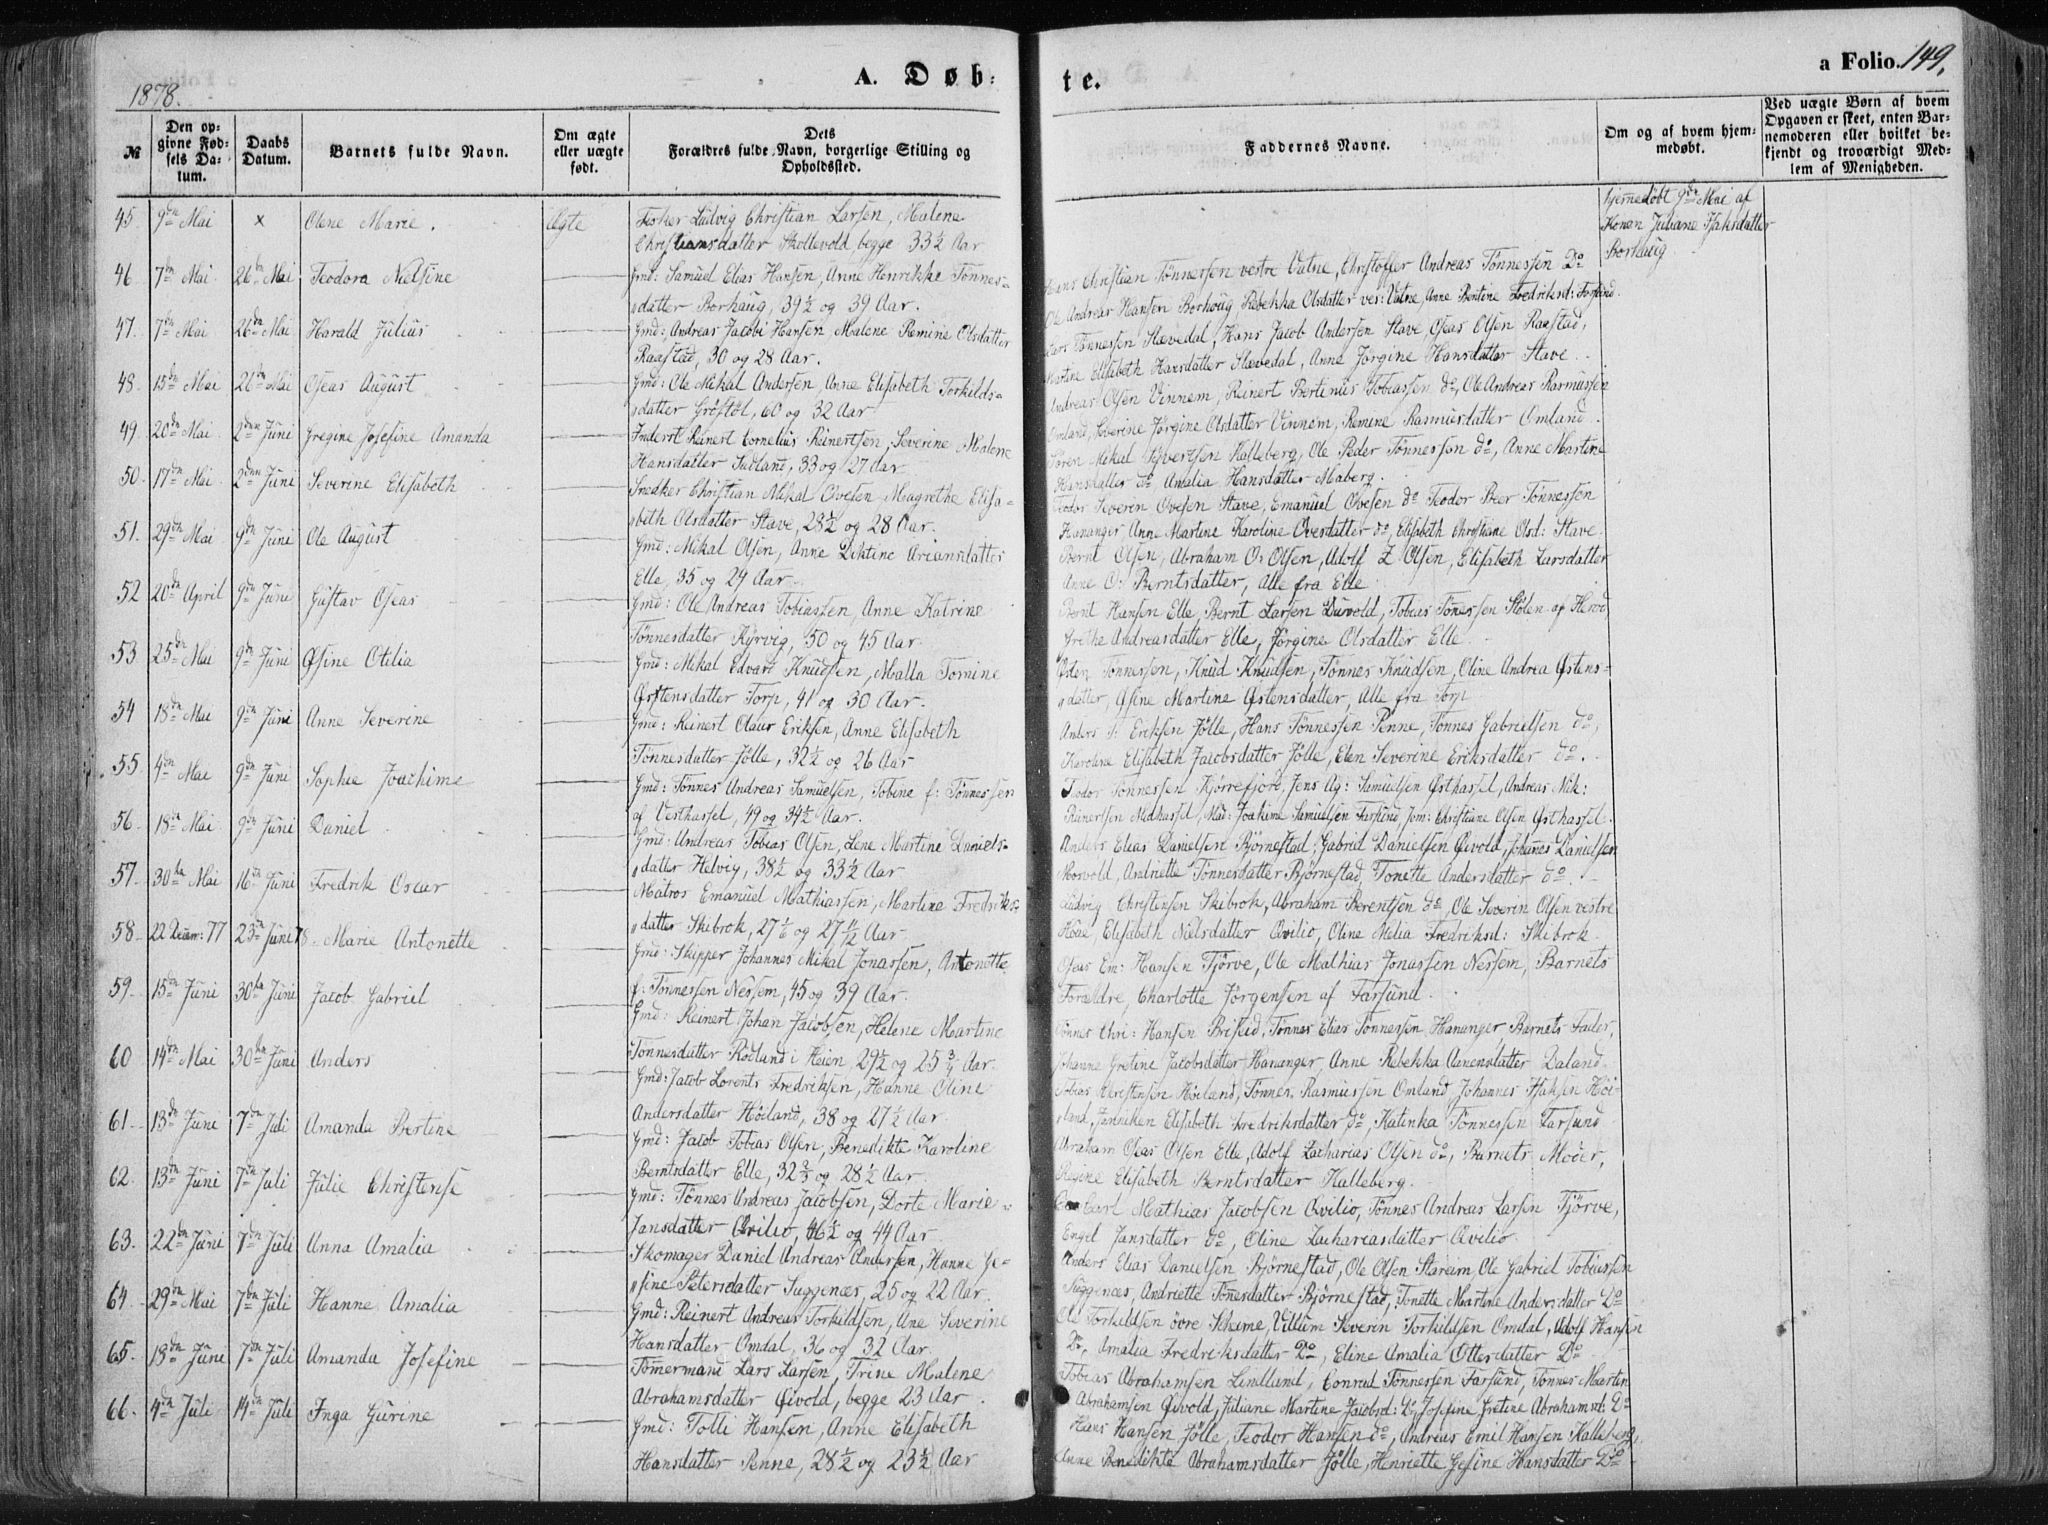 1878.
A. Døb-
te.
a Folio 149.
№
Den op-
givne Fød-
sels Da-
tum.
Daabs
Datum.
Barnets fulde Navn.
Om ægte
eller uægte
født.
Dets
Forældres fulde Navn, borgerlige Stilling og
Opholdssted.
Faddernes Navne.
Om og af hvem hjem-
medøbt.
Ved uægte Børn af hvem
Opgaven er skeet, enten Bar-
nemoderen eller hvilket be-
kjendt og troværdigt Med-
lem af Menigheden.
45 9de Mai × Olene Marie. Ægte Fisker Ludvig Christian Larsen, Malene
Christiansdatter Skollevold begge 33½ Aar
hjemedøbt 9de Mai af
Konen Juliane Isaksdatter
Borhaug
46 7de Mai 26de Mai Teodora Nielsine Gmd: Samuel Elias Hansen, Anne Henrikke Tønnes-
datter Borhaug, 39½ og 39 Aar.
Hans Christian Tønnessen vestre Vatne, Christoffer Andreas Tønnessen Do
Ole Andreas Hansen Borhoug Rebekka Olsdatter ves: Vatne, Anne Bertine Fredriksd: Farsund.
47. 7de Mai 26de Mai Harald Julius Gmd: Andreas Jacobi Hansen Malene Remine Olsdatter
Raastad, 30 og 28 Aar.
Lars Tønnessen Slævedal, Hans Jacob Andersen Stave, Oseas Olsen Raastad,
Martine Elisabeth Hansdatter Slævedal, Anne Jørgine Hansdatter Stave.
48. 15de Mai 26de Mai Oseas August Gmd: Ole Mikal Andersen, Anne Elisabeth Torkilds-
datter Grøstøl, 60 og 32 Aar
Andreas Olsen Vinnem, Reinert Bertinius Tobiassen do, Ole Andreas Rasmussen
Omland, Severine Jørgine Olsdatter Vinnem, Remine Rasmusdatter Omland.
49. 20de Mai 2den Juni Gregine Josefine Amanda Inderst Reinert Cornelius Reinertsen, Severine Malene
Hansdatter Sudland, 33 og 27 Aar
Søren Mikal Syvertsen Kalleberg, Ole Peder Tønnessen do, Anne Martine
Hansdatter do Amalia Hansdatter Maberg.
50. 17de Mai 2den Juni Severine Elisabeth Snedker Christian Mikal Ovesen Magrethe Elisa-
beth Olsdatter Stave, 28½ og 28 Aar.
Teodor Severin Ovesen Stave, Emanuel Ovesen do Teodor Beer Tønnessen
Hananger Anne Martine Karoline Ovesdatter do, Elisabeth Christiane Olsd: Stave.
51. 29de Mai 9de Juni Ole August Gmd: Mikal Olsen, Anne Diktine Ariansdatter
Elle, 35 og 29 Aar.
Bernt Olsen, Abraham O: Olsen, Adolf Z Olsen, Elisabeth Larsdatter
Anne O: Berntsdatter, Alle fra Elle
52 20de April 9de Juni Gustav Oseas Gmd: Ole Andreas Tobiassen, Anne Katrine
Tønnesdatter Kjrvig, 50 og 45 Aar.
Bernt Hansen Elle, Bernt Larsen Duvold, Tobias Tønnessen Stølen af Herod
Grethe Andreasdatter Elle, Jørgine Olsdatter Elle.
53 25de Mai 9de Juni Øsine Otilia Gmd: Mikal Edvart Knudsen, Malla Tomine
Østensdatter Torp, 41 og 30 Aar.
Østen Tønnessen, Knud Knudsen, Tønnes Knudsen, Oline Andrea Østens-
datter, Øsine Martine Østensdatter, Alle fra Torp
54 18de Mai 9de Juni Anne Severine Gmd: Reinert Olaus Eriksen, Anne Elisabeth
Tønnesdatter Jølle, 32½ og 26 Aar
Anders Eriksen Jølle, Hans Tønnessen Penne, Tønnes Gabrielsen do,
Karoline Elisabeth Jacobsdatter Jølle, Elen Severine Eriksdatter do.
55. 4de Mai 9de Juni Sophie Joachime Gmd: Tønnes Andreas Samuelsen, Tobine f: Tønnessen
af Vesthassel, 49 og 34½ Aar.
Teodor Tønnessen Kjørrefjord, Jens Ag: Samuelsen Østhassel, Andreas Nik:
Reinertsen Midhassel, Mad: Joakime Samuelsen Farsund Jom: Christiane Olsen Østhassel.
56. 18de Mai 9de Juni Daniel Gmd: Andreas Tobias Olsen, Lene Martine Daniels-
datter Helvig, 38½ og 33½ Aar
Anders Elias Danielsen Bjørnestad, Gabriel Danielsen Øivold, Johannes Danielsen
Morvold, Andriette Tønnesdatter Bjørnestad, Tonette Andersdatter do.
57. 30te Mai 16de Juni Fredrik Oscar Matros Emanuel Mathiassen, Martine Fredriks-
datter Skibrok, 27 og 27 Aar
Ludvig Christensen Skibrok, Abraham Berentsen do, Ole Severin Olsen vestre
Hove, Elisabeth Nielsdatter Øvilio, Oline Melia Fredriksd: Skibrok.
58. 22 Decem: 77 23de Juni 78. Marie Antonette Gmd: Skipper Johannes Mikal Jonassen, Antonette
f: Tønnessen Nessem, 45 og 39 Aar.
Oseas Em: Hansen Tjørve, Ole Mathias Jonassen Nessem, Barnets
Forældre, Charlotte Jørgensen af Farsund.
59. 15de Juni 30te Juni Jacob Gabriel Gmd: Reinert Johan Jacobsen, Helene Martine
Tønnesdatter Rødland i Heien, 29½ og 25¾ Aar.
Tønnes Chri: Hansen Briseid, Tønnes Elias Tønnessen Hananger, Barnets Fader,
Johanne Gretine Jacobsdatter Hananger, Anne Rebekka Aanensdatter Daland
60 14de Mai 30te Juni Anders Gmd: Jacob Lorents Fredriksen, Hanne Oline
Andersdatter Høiland, 38 og 27½ Aar.
Tobias Christensen Høiland, Tønnes Rasmussen Omland, Johannes Isaksen Høi
land, Janniken Elisabeth Fredriksdatter do, Katinka Tønnessen Farsund
61. 13de Juni 7de Juli Amanda Bertine Gmd: Jacob Tobias Olsen, Benedikte Karoline
Berntsdatter Elle, 32⅔ og 28½ Aar.
Abraham Oseas Olsen Elle, Adolf Zacharias Olsen do, Barnets Moder,
Regine Elisabeth Berntsdatter Kalleberg.
62. 13de Juni 7de Juli Julie Christense Gmd: Tønnes Andreas Jacobsen, Dorte Marie
Jansdatter Øvilio, 46½ og 44 Aar
Carl Mathias Jacobsen Øvilio, Tønnes Andreas Larsen Tjørve,
Engel Jansdatter do, Oline Zachariasdatter Øvilio
63. 22de Juni 7de Juli Anna Amalia Skomager Daniel Andreas Andersen, Hanne Ge-
sine Petersdatter Suggenæs, 25 og 22 Aar.
Anders Elias Danielsen Bjørnestad, Ole Olsen Stareim, Ole Gabriel Tobiassen
Suggenæs, Andriette Tønesdatter Bjørnestad, Tonette Martine Andersdatter Do
64. 29de Mai 7de Juli Hanne Amalia Gmd: Reinert Andreas Torkildsen, Ane Severine
Hansdatter Omdal, 36 og 32 Aar.
Ole Torkildsen øvre Skeime, Villum Severin Torkildsen Omdal, Adolf Hansen
Do, Amalia Fredriksdatter Do, Eline Amalia Ottersdatter Do
65. 13de Juni 7de Juli Amanda Josefine Tømermand Lars Larsen, Trine Malene
Abrahamsdatter Øivold, begge 23 Aar.
Tobias Abrahamsen Lindlund, Conrad Tønnessen Farsund, Tønnes Martin
Abrahamsen Øivold, Juliane Martine Jacobsd: Do, Josefine Gretine Abrahamsd: Do
66. 4de Juli 14de Juli Inga Gurine Gmd: Tolli Hansen, Anne Elisabeth
Hansdatter Penne, 28½ og 23½ Aar
Hans Hansen Jølle, Teodor Hansen do, Andreas Emil Hansen Kalleberg,
Anne Benedikte Abrahamsdatter Jølle, Henriette Gesine Hansdatter Do